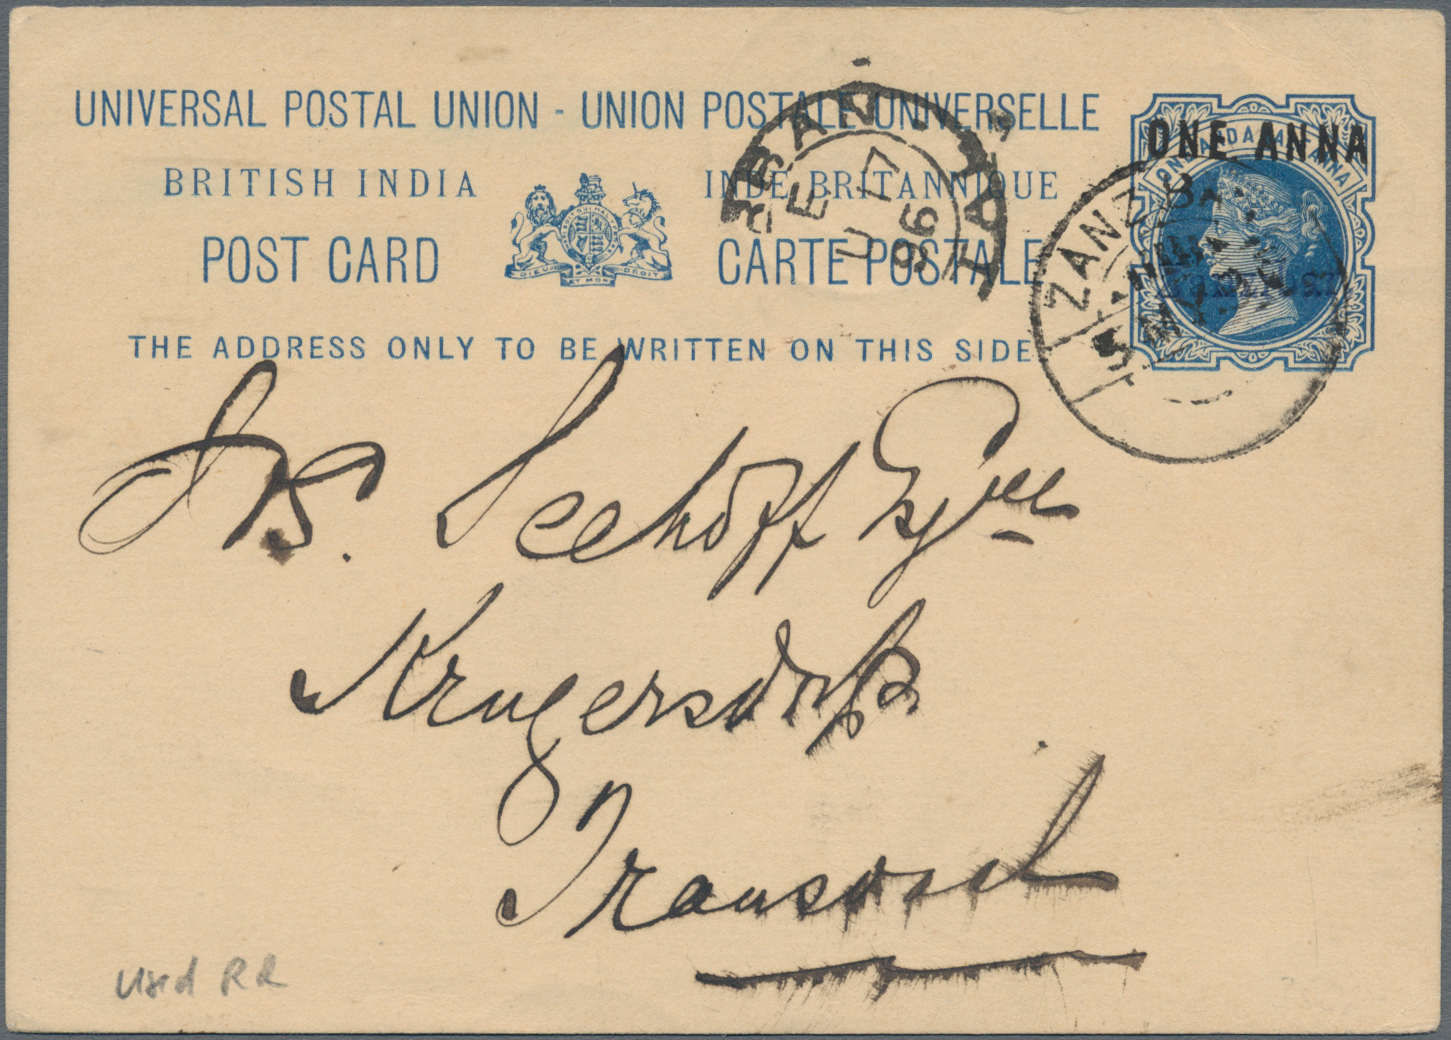 UNIVERSAL POSTAL UNION - UNION POSTALE UNIVERSELLE
BRITISH INDIA INDE BRITANNIQUE
POST CARD CARTE POSTALE
DIEU ET MON DROIT
THE ADDRESS ONLY TO BE WRITTEN ON THIS SIDE
ONE ANNA
Zanzibar
ZANZIBAR
E
17
96
NATAL
Seehoff Esqre
Krugersdorp
Transvaal
Used